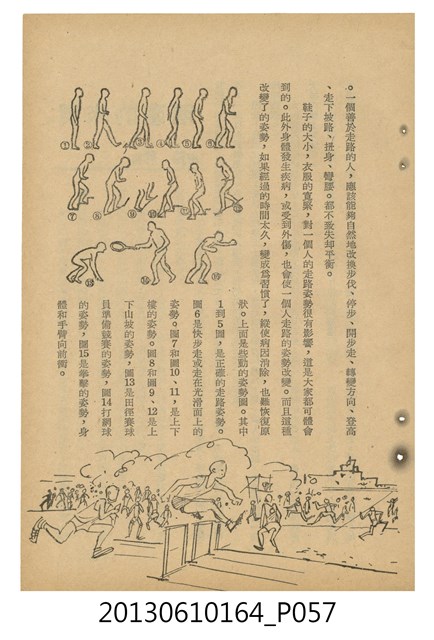 。一個善於走路的人，應該能夠自然地改換步伐、停步、開步走、轉變方向、登高
、走下坡路、扭身、彎腰。都不致失却平衡。
鞋子的大小，衣服的寬緊，對一個人的走路姿勢很有影響，這是大家都可體會
到的。此外身體發生疾病，或受到外傷，也會使一個人走路的姿勢改變。而且這種
改變了的姿勢，如果經過的時間太久，變成為習慣了，縱使病因消除，也難恢復原
狀。上面是些動的姿勢圖。其中
1到5圖，是正確的走路姿勢。
圖6是快步走或走在光滑面上的
姿勢。圖7和圖10、11，是上下
樓的姿勢。圖8和圖9、12是上
下山坡的姿勢，圖13是田徑賽球
員準備競賽的姿勢，圖14打網球
的姿勢，圖15是拳擊的姿勢，身
體和手臂向前衝。
20130610164_P057